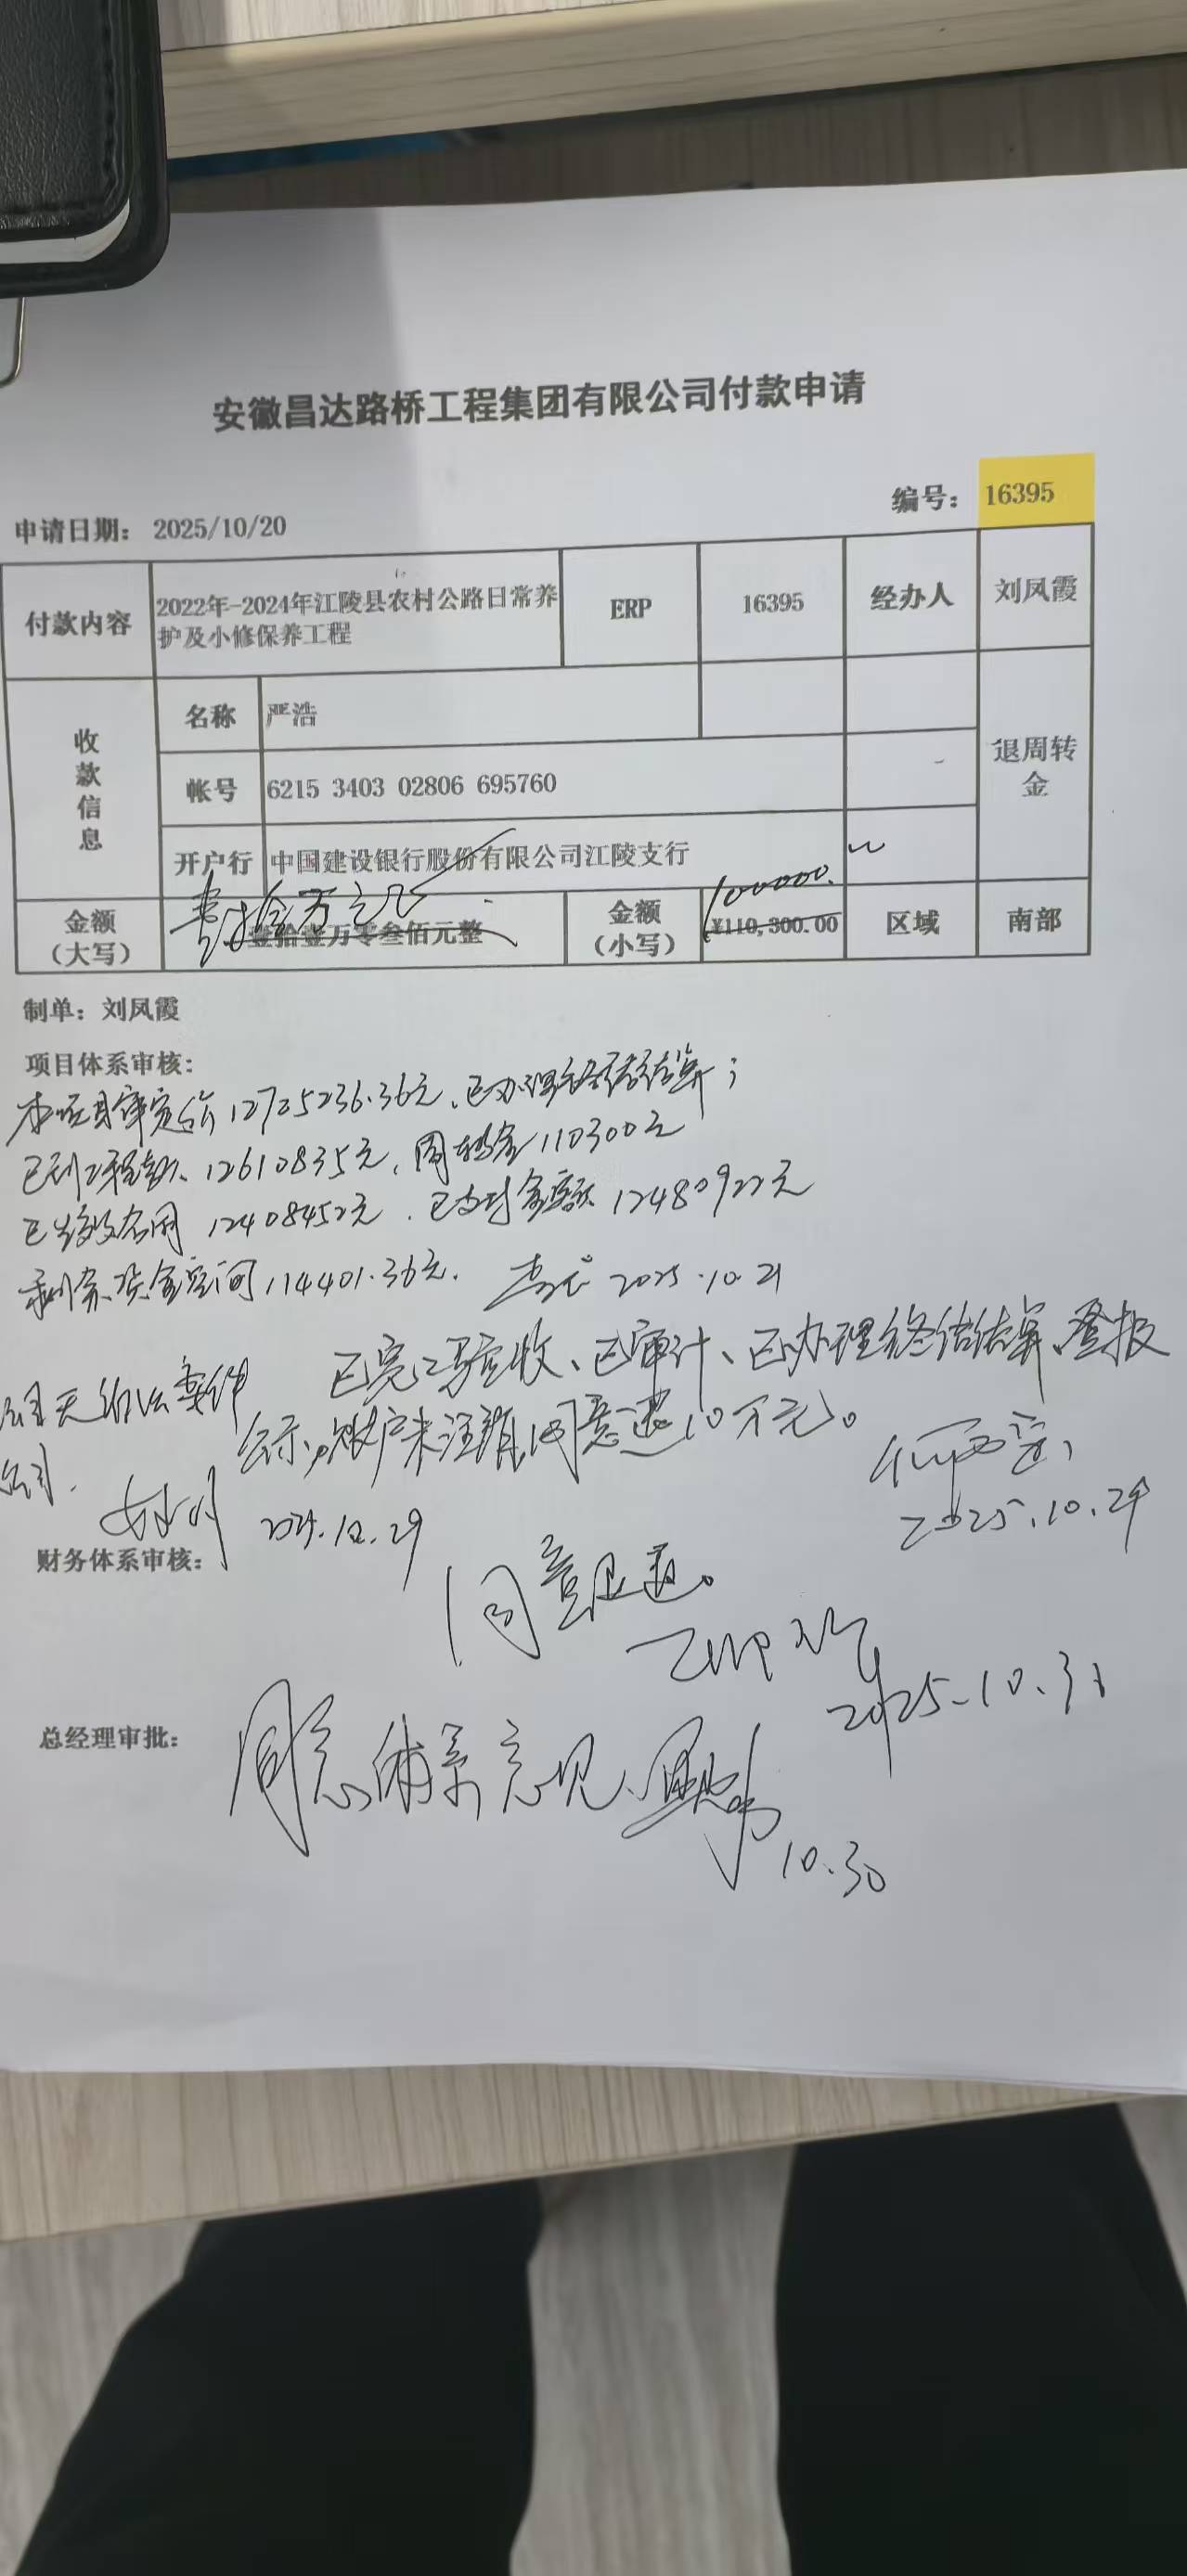 安徽昌达路桥工程集团有限公司付款申请
编号： 16395
申请日期： 2025/10/20
付款内容 2022年-2024年江陵县农村公路日常养护及小修保养工程 ERP 16395 经办人 刘凤霞
收款信息 名称 严浩
帐号 6215 3403 02806 695760
退周转金
开户行 中国建设银行股份有限公司江陵支行
壹拾万元 100000.
金额（大写） 壹拾壹万零叁佰元整 金额（小写） ¥110,300.00 区域 南部
制单：刘凤霞
项目体系审核：
本项目审定价12725236.36元、已办理终结结算；
已到工程款、12610835元，周转金110300元
12408452元．已支付金额12480922元
剩余资金空间114401.36元． 2025.10.21
已完工验收、已审计、已办理终结结算、登报
公示，账户未注销，同意退10万元。
2025.10.29
2025.10.29
财务体系审核：
同意退。
2025.10.31
总经理审批：
同意 意见、
10.30